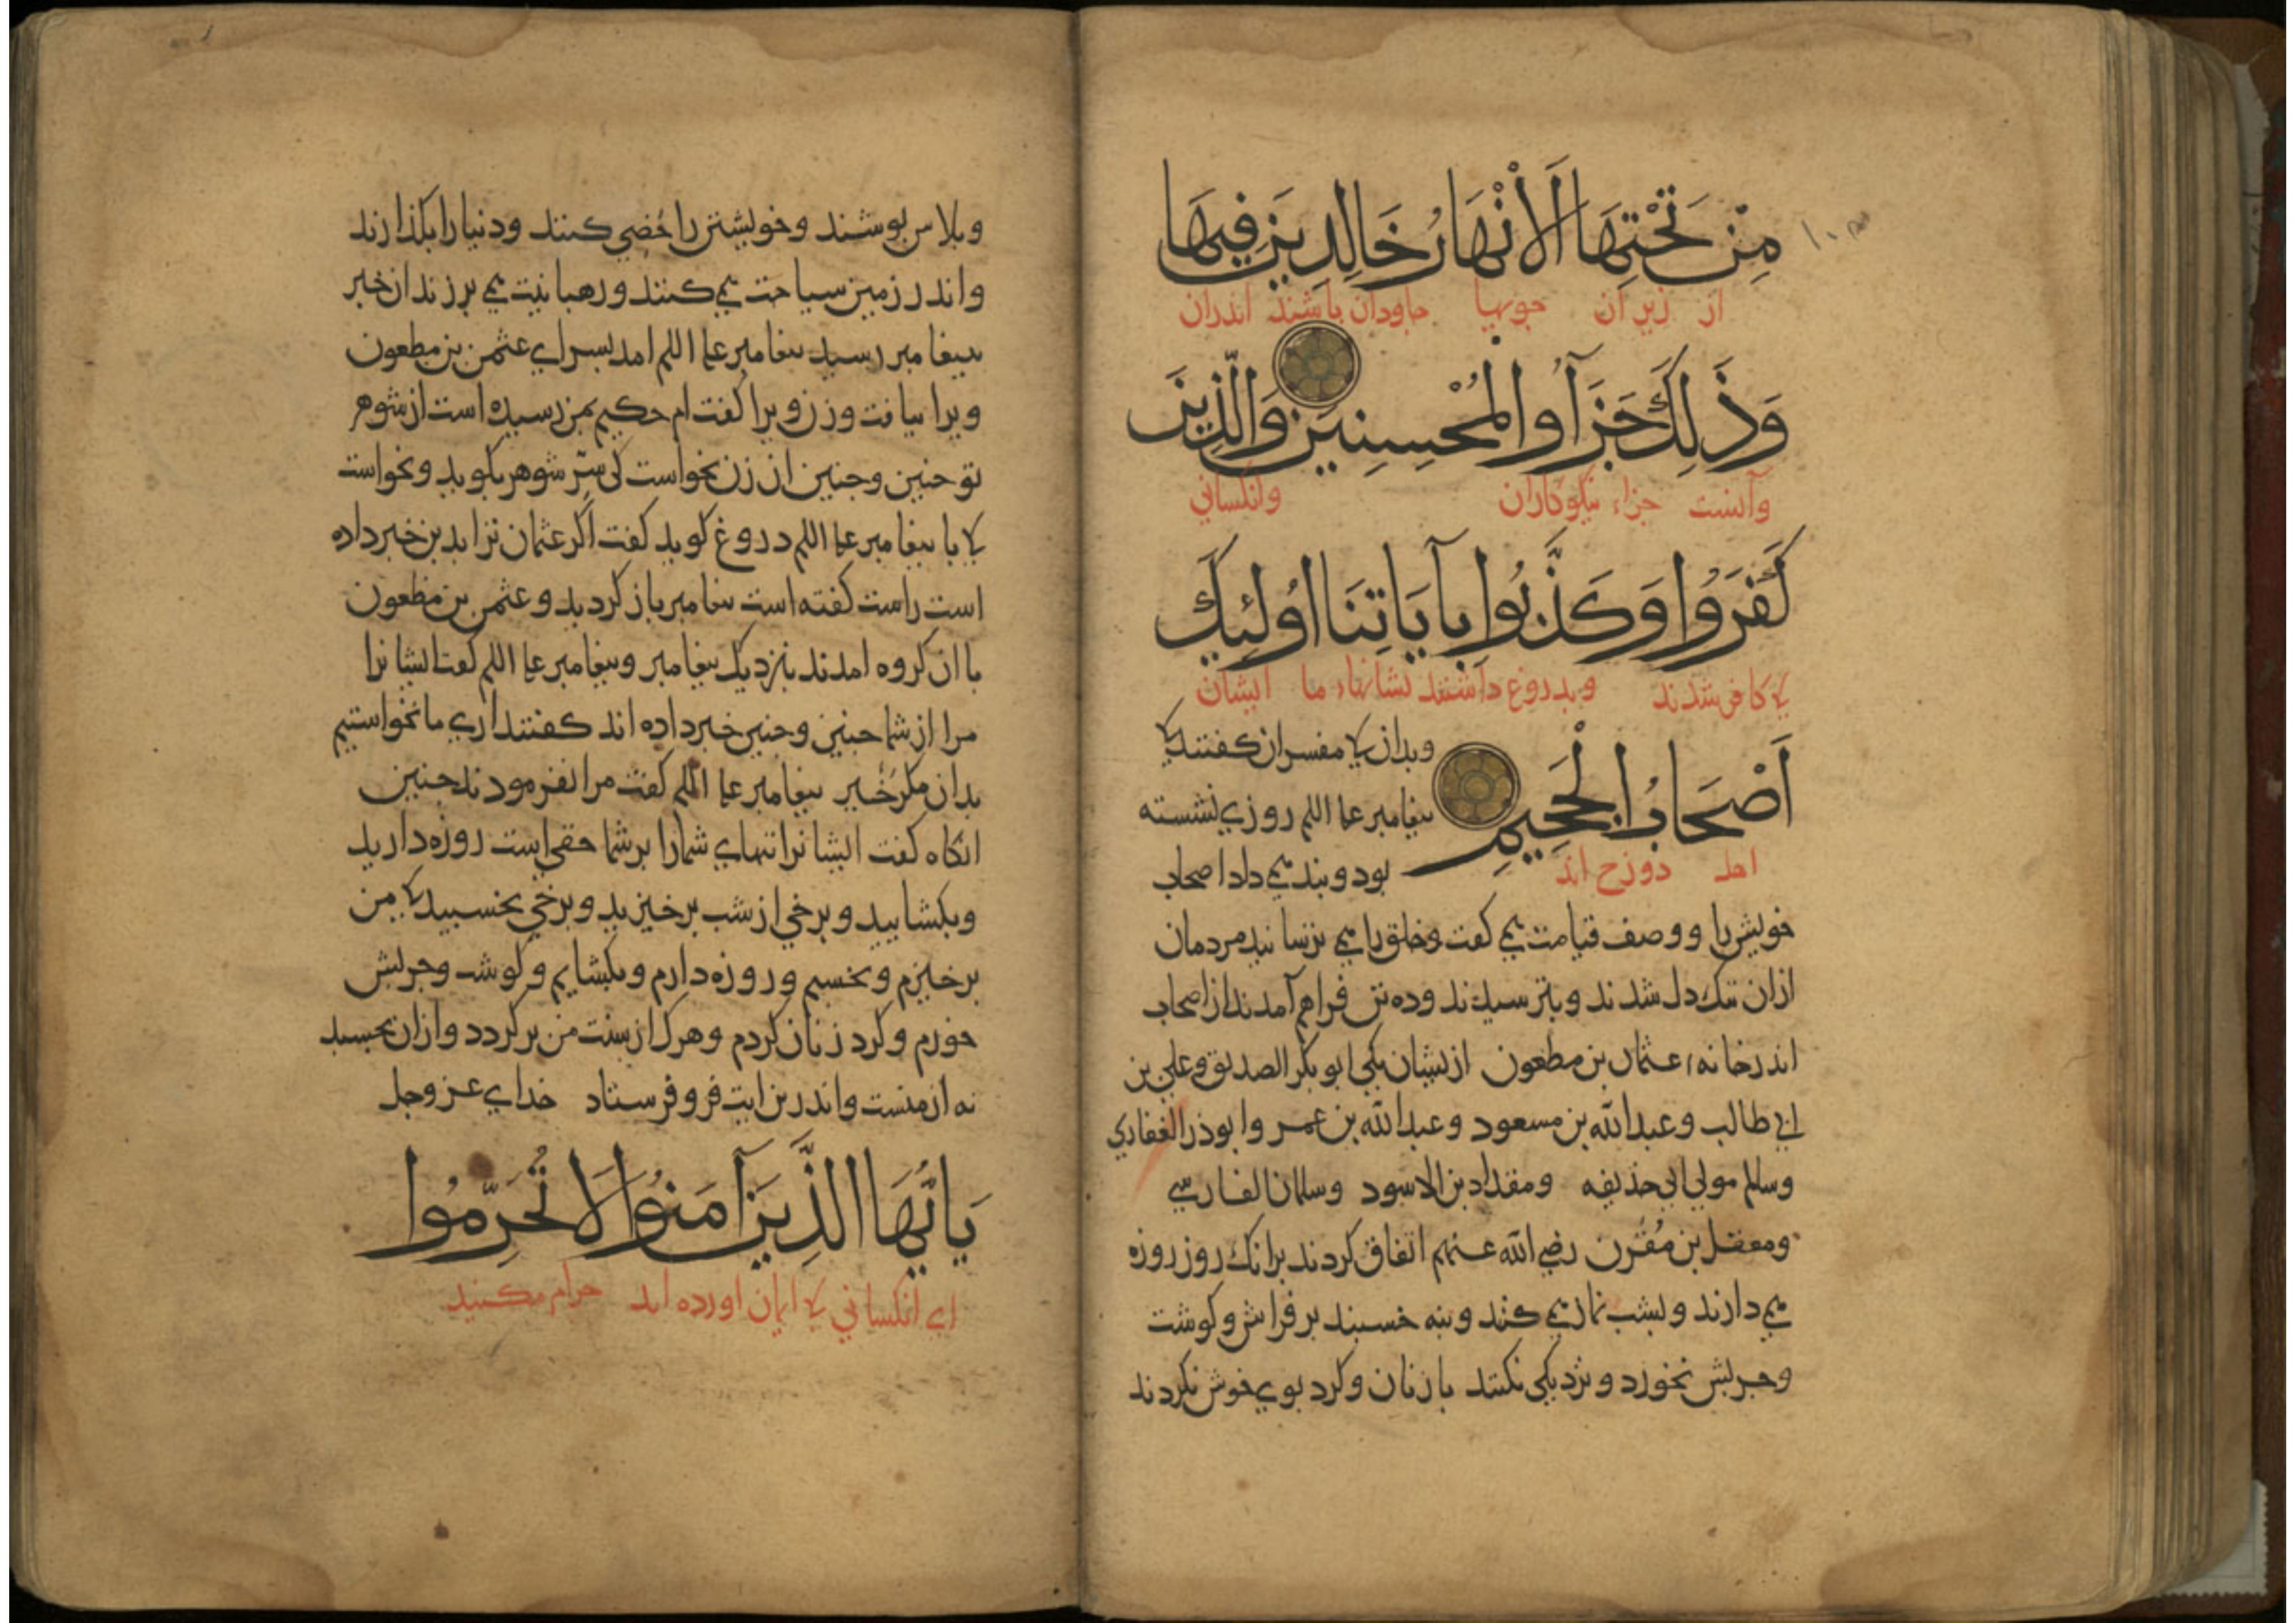 مِنْ تَحْتِهَا الْأَنْهَارُ خَالِدِينَ فِيهَا
از زیر آن جویها جاودان باشند اندران
وَذَلِكَ جَزَآؤُا الْمُحْسِنِينَ وَالَّذِينَ
وآنست جزاء نیکوکاران وانکسانی
كَفَرُوا وَكَذَّبُوا بِآيَاتِنَا أُولَئِكَ
کی کافر شدند وبدروغ داشتند نشانهاء ما ایشان
أَصْحَابُ الْجَحِيمِ
اهل دوزخ اند
وبدان کی مفسران کفتند کی
بیغامبر علیه السلم روزی نشسته
بود وبند می داد اصحاب
خویش را ووصف قیامت می کفت وخلق را می ترسانید مردمان
ازان تنک دل شدند وبترسیدند وده تن فراهم آمدند از اصحاب
اندر خانهء عثمان بن مظعون ازیشان یکی ابو بکر الصدیق وعلی بن
ابی طالب وعبد الله بن مسعود وعبد الله بن عمر وابوذر الغفاری
وسالم مولی ابی حذیفه ومقداد بن الاسود وسلمان الفارسی
ومعقل بن مُقَرن رضی الله عنهم اتفاق کردند برانک روز روزه
می دارند وبشب نماز می کنند وبنه خسبند بر فراش وکوشت
وجربش نخورد ونزدیکی نکنند با زنان وکرد بوی خوش نکردند
وبلاس بوشند وخویشتن را خصی کنند ودنیا را بکذارند
واندر زمین سیاحت می کنند ورهبانیت می برزند ان خبر
ببیغامبر رسید بیغامبر علیه السلم امد بسرای عثمن بن مظعون
ویرا نیافت وزن ویرا کفت ام حکیم بمن رسیده است از شوهر
تو جنین وجنین ان زن نخواست کی سِرّ شوهر بکوید ونخواست
کی با بیغامبر علیه السلم دروغ کوید کفت اکر عثمان ترا بدین خبر داده
است راست کفته است بیغامبر باز کردید وعثمن بن مظعون
با ان کروه امدند بنزدیک بیغامبر وبیغامبر علیه السلم کفت ایشانرا
مرا از شما جنین وجنین خبر داده اند کفتند اری ما نخواستیم
بدان مکر خیر بیغامبر علیه السلم کفت مرا نفرمودند جنین
انکاه کفت ایشانرا تنهای شما را بر شما حقی است روزه دارید
وبکشایید وبرخی از شب برخیزید وبرخی بخسبید کی من
برخیزم وبخسبم وروزه دارم وبکشایم وکوشت وجربش
خورم وکرد زنان کردم وهرک از سنت من برکردد وازان بخسبد
نه از منست واندرین ایت فرو فرستاد خدای عز وجل
يَاأَيُّهَا الَّذِينَ آمَنُوا لَا تُحَرِّمُوا
ای انکسانی کی ایمان اورده اید حرام مکنید